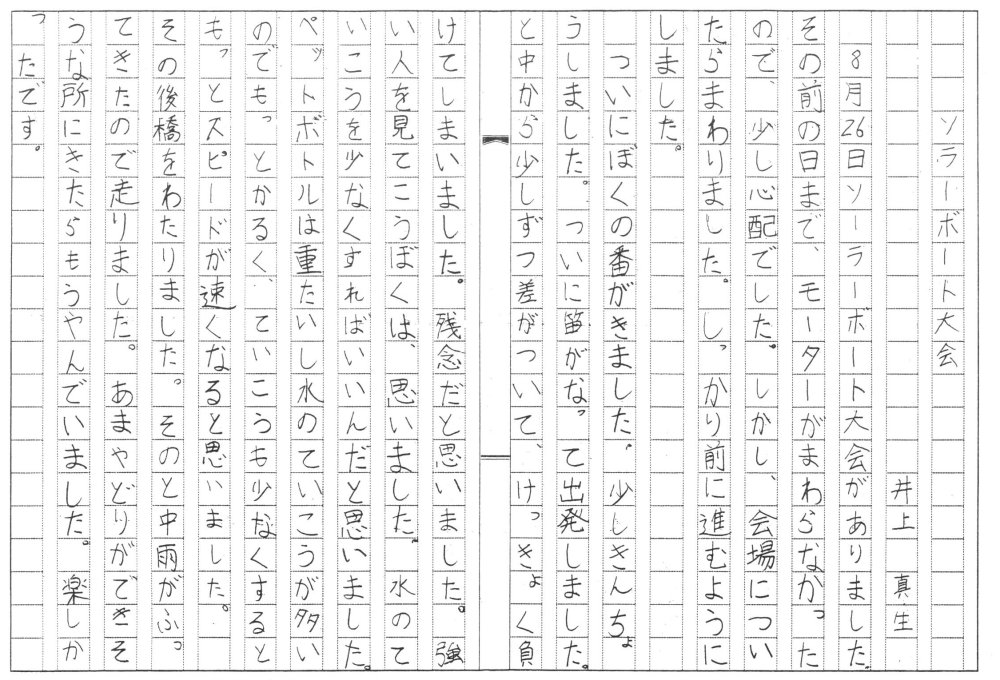 ソラーボート大会
井上 真生
8月26日ソーラーボート大会がありました。
その前の日まで、モーターがまわらなかった
ので、少し心配でした。しかし、会場につい
たらまわりました。しっかり前に進むように
しました。
ついにぼくの番がきました。少しきんちょ
うしました。ついに笛がなって出発しました。
と中から少しずつ差がついて、けっきょく負
けてしまいました。残念だと思いました。強
い人を見てこうぼくは、思いました。水のて
いこうを少なくすればいいんだと思いました。
ペットボトルは重たいし水のていこうが多い
のでもっとかるく、ていこうも少なくすると
もっとスピードが速くなると思いました。
その後橋をわたりました。そのと中雨がふっ
てきたので走りました。あまやどりができそ
うな所にきたらもうやんでいました。楽しか
ったです。